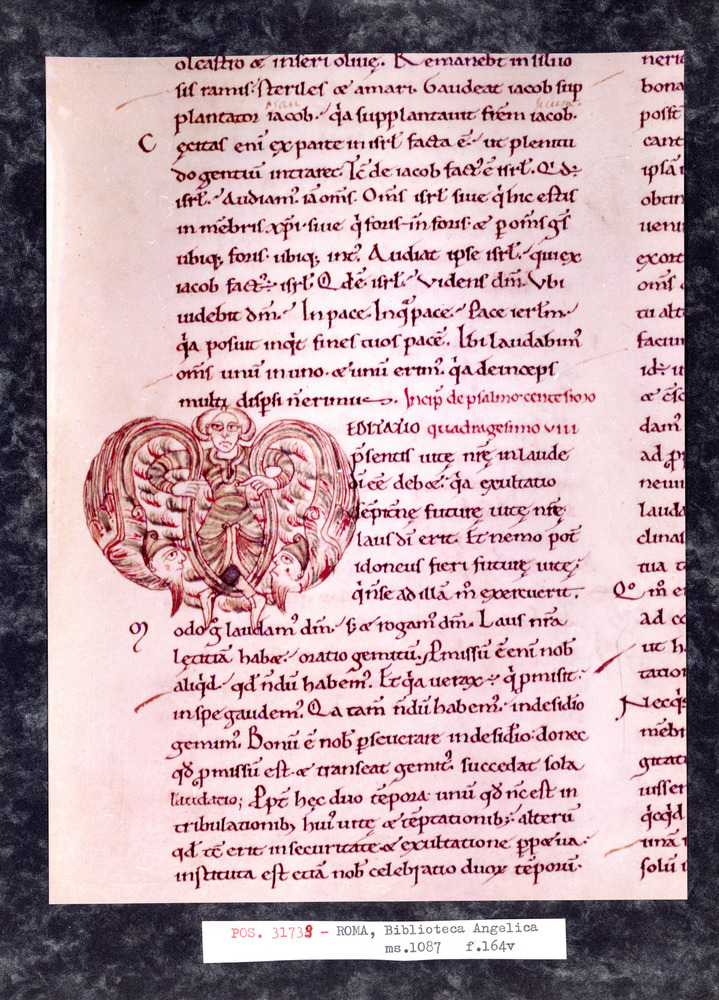 oleastro & inseri oliuę. Remanebt in siluo
sis ramis. steriles & amari. Gaudeat iacob sup
esau sicut
plantator iacob. q̓a supplantauit frēm iacob.
C ęcitas enī ex parte in isrł facta ē. ut plenitu
do gentiū intraret. Ic̄ de iacob fact᷒ ē isrł. Q.d.
isrł. Audiam᷒ iā om̄s. Om̄s isrł siue q̓ hic estis
in mēbris xp̄i siue q̓ foris & in foris & p om̄s gs̄
ubiq; foris ubiq; int᷒. Audiat ipse isrł. qui ex
iacob fact᷒ isrł. Q d̄ē isrł. Videns dm̄. Vbi
uidebit dm̄. In pace. In q̓ pace. Pace ierłm.
q̓a posuit inq̓t fines tuos pacē. Ibi laudabim᷒
om̄s unū in uno & unū erim᷒. q̓a deinceps
multi disp̄si n̄ erimus. Incip̄ de psalmo centesimo
EDITATIO quadragesimo VIII
p̄sentis uitę nr̄ę in laude
di eē deb&. q̓a exultatio
sēpit̄ne futurę uitę nr̄ę
laus dī erit. Et nemo pot̄
idoneus fieri futurę uitę.
q̓ n̄ se ad illā m̄ exercuerit.
M odo g̊ laudam᷒ dm̄. s; & rogam᷒ dm̄. Laus nr̄a
lętitiā hab&. oratio gemitū. Pmissū ē enī nob̄
aliq̓d. qd̄ n̄dū habem᷒. Et q̓a uerax ÷ q̓ pmisit.
in spe gaudem᷒. Q a tam̄ n̄dū habem᷒. in desidio
gemim᷒. Bonū ē nob̄ pseuerare in desidio. donec
qd̄ pmissū est. & transeat gemit᷒. succedat sola
laudatio; Ppt̄ hęc duo tēpora. unū qd̄ nc̄ est in
tribulationib; hui᷒ uitę & tēptationib;. alterū
qd̄ tc̄ erit in securitate & exultatione pp&ua.
instituta est etiā nob̄ celebratio duoꝝ tēporū.
bona
posst
cant
ipsā
obtin
ueni
exort
om̄s
tu alt
facium
dam᷒
ad p
neuu
lauda
clinas
tua
Qo m̄ e
ad co
ut h
tation
Necq̓s
mēbr
gitati
uisser
q̓cq̓d
unā
solū
POS. 31738 - ROMA, Biblioteca Angelica
ms.1087 f.164v